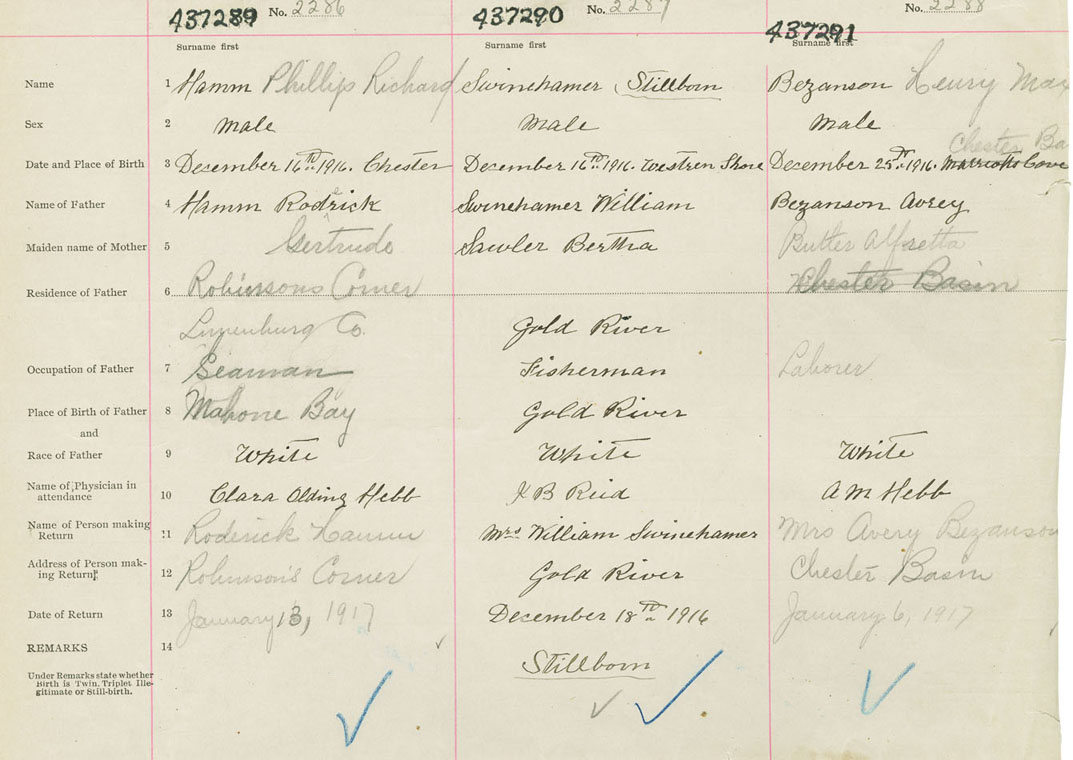 437289 No. 2286 437290 No. 2287 437291 No. 2288
Surname first Surname first Surname first
Name 1 Hamm Phillips Richard Swinehamer Stillborn Bezanson Henry Max
Sex 2 Male Male Male
Chester Ba
Date and Place of Birth 3 December 16TH 1916. Chester December 16TH 1916. Westren Shore December 25TH 1916. Marriotts Cove
Name of Father 4 Hamm Rodrick Swinehamer William Bezanson Avrey
Maiden name of Mother 5 Gertrude Sawler Bertha Butler Alfretta
Residence of Father 6 Robinsons Corner Chester Basin
Lunenburg Co. Gold River
Occupation of Father 7 Seaman Fisherman Laborer
Place of Birth of Father 8 Mahone Bay Gold River
and
Race of Father 9 White White White
Name of Physician in
attendance 10 Clara Olding Hebb H B Reid A M Hebb
Name of Person making
Return 11 Roderick Hamm Mrs William Swinehamer Mrs Avery Bezanson
Address of Person mak-
ing Return 12 Robinson's Corner Gold River Chester Basin
Date of Return 13 January 13, 1917 December 18TH 1916 January 6, 1917
REMARKS 14 Stillborn
Under Remarks state whether
Birth is Twin, Triplet Ille-
gitimate or Still-birth.